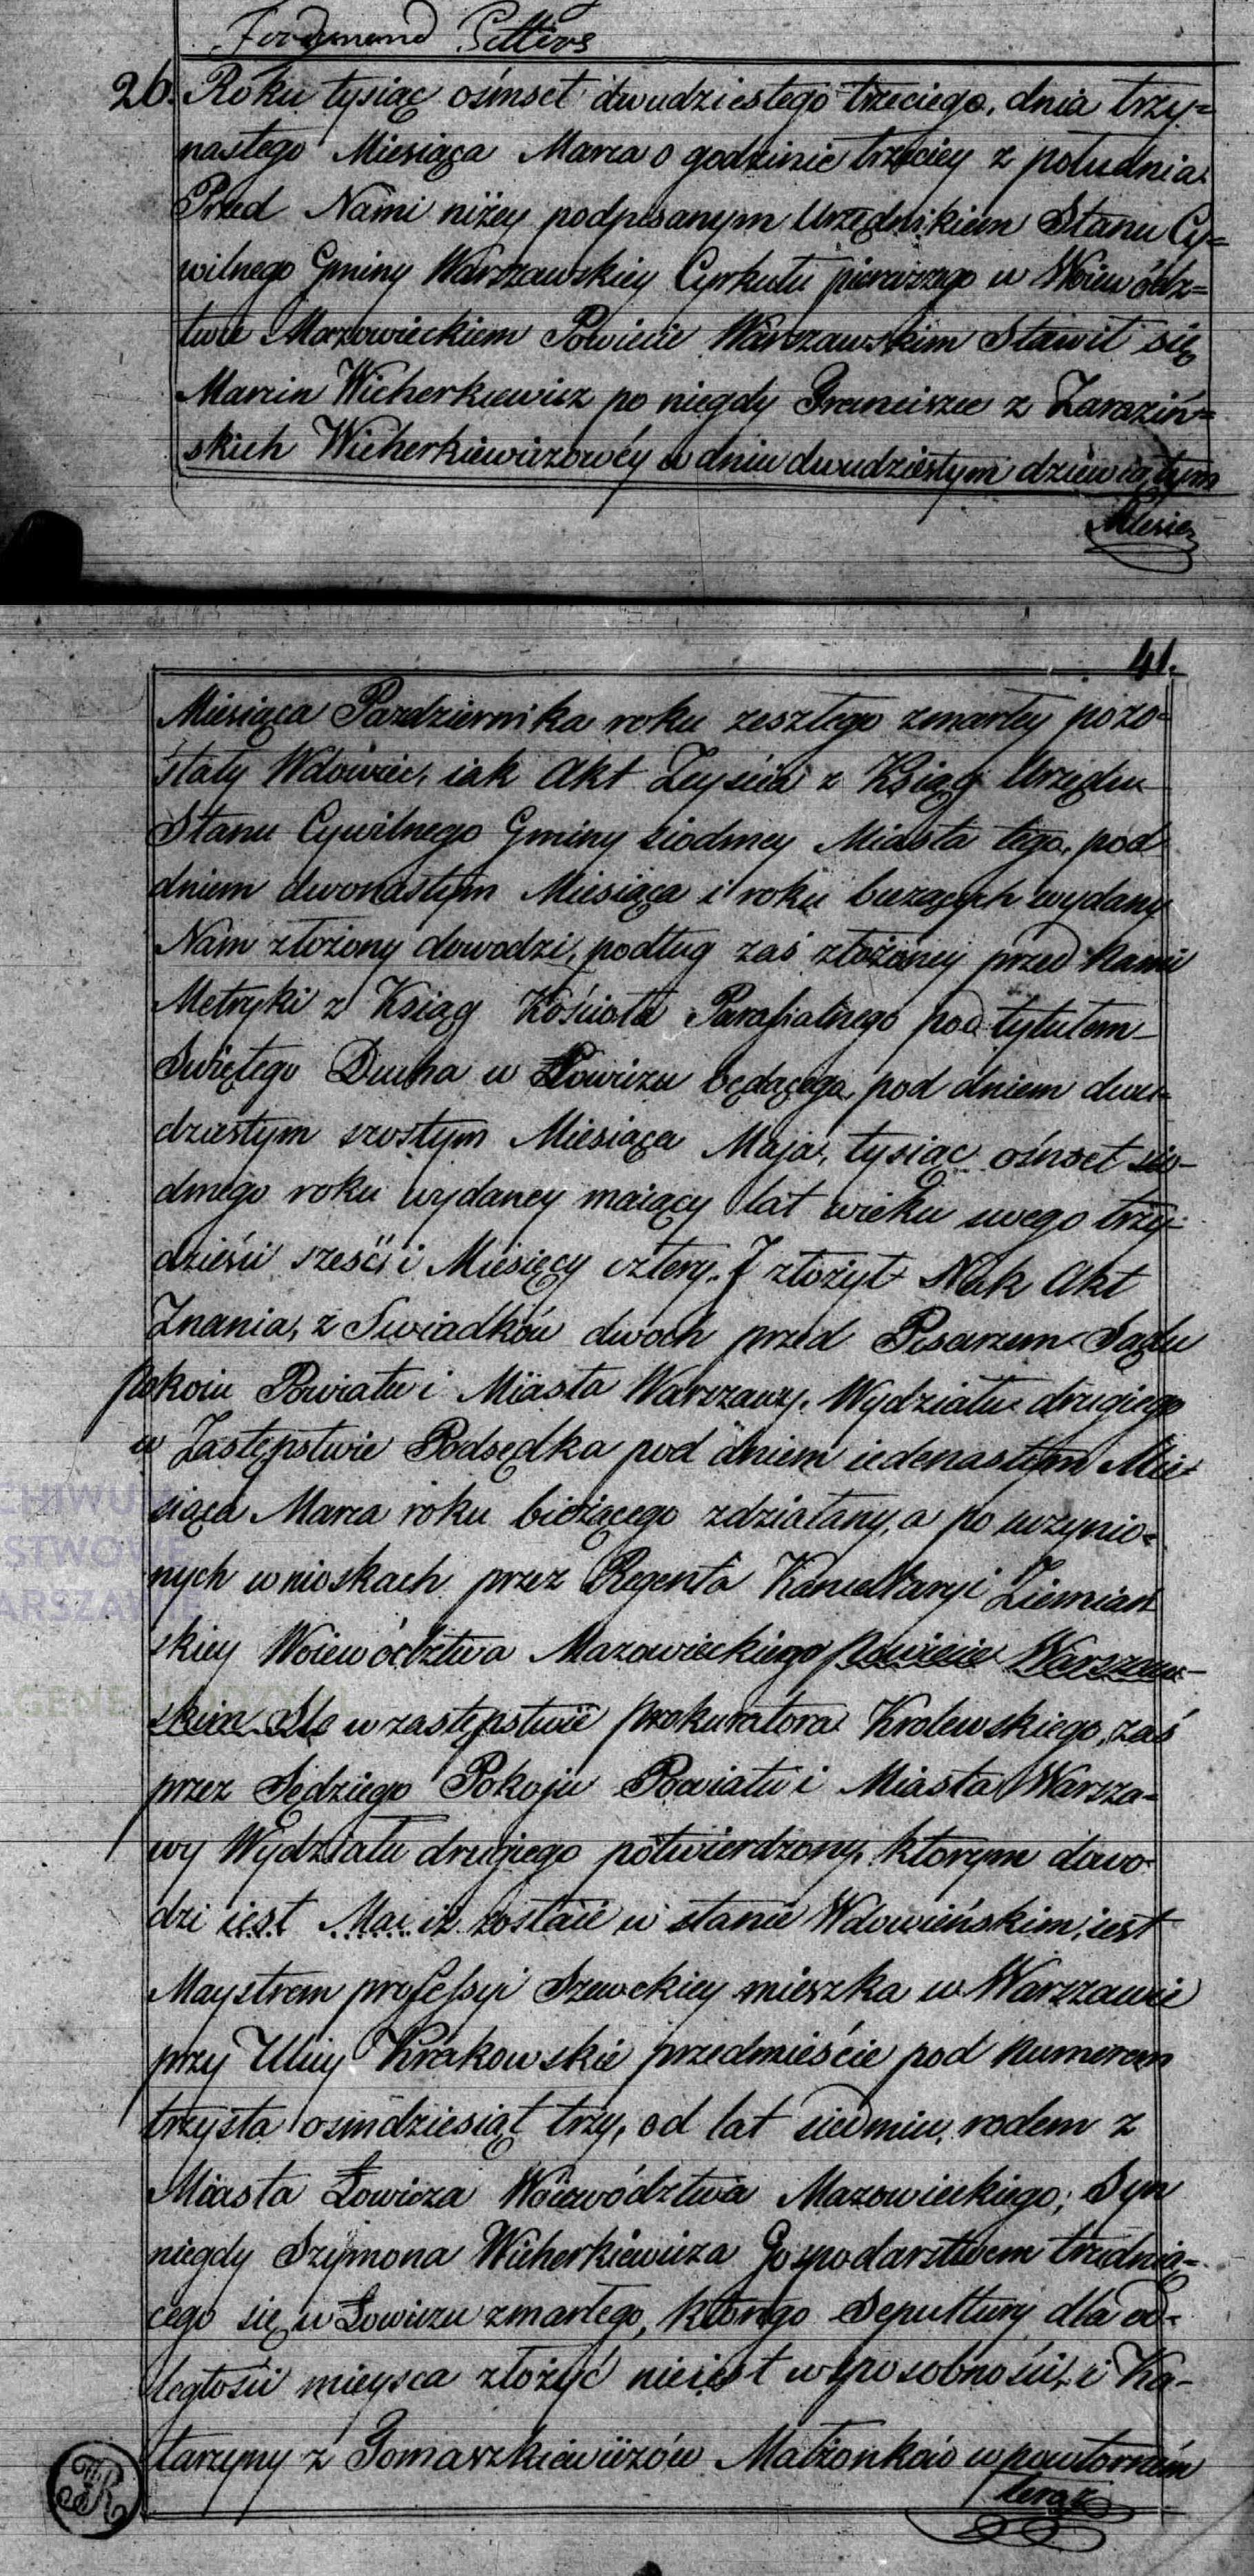 Ferdynand
26. Roku tysiąc ośmset dwudziestego trzeciego, dnia trzy=
nastego Miesiąca Marca o godzinie trzeciey z południa
Przed Nami niżey podpisanym Urzędnikiem Stanu Cy=
wilnego Gminy Warszawskiey Cyrkułu pierwszego w Woiewódz=
twie Mazowieckiem Powiecie Warszawskim Stawił się
Marcin Wicherkiewicz po niegdy Franciszce z Zarazińs=
skich Wicherkiewiczowey w dniu dwudziestym dziewiątym
Miesią
41.
Miesiąca Pazdziernika roku zeszłego zmarłey pozo=
stały Wdowiec, iak Akt Zeyścia z Ksiąg Urzędu
Stanu Cywilnego Gminy siodmey Miasta tego, pod
dniem dwonastym Miesiąca i roku bieżących wydany
Nam złożony dowodzi, podług zaś złożoney przed Nami
Metryki z Ksiąg Kościoła Parafialnego pod tytułem
Swiętego Ducha w Łowiczu będącego, pod dniem dwu=
dziestym szostym Miesiąca Maja, tysiąc ośmset sio=
dmego roku wydaney maiący lat wieku swego trzy=
dzieści sześć i Miesięcy cztery. I złożył Akt
Znania, z Swiadków dwoch przed Pisarzem Sądu
Pokoiu Powiatu i Miasta Warszawy, Wydziału drugiego
w Zastępstwie Podsędka pod dniem iedenastym Mie=
siąca Marca roku bieżącego zdziałany, a po uczynio=
nych wnioskach przez Regenta Kancellaryi Ziemiań
skiey Woiewództwa Mazowieckiego Powiecie Warszaw=
skim w zastępstwie Prokuratora Krolewskiego, zaś
przez Sędziego Pokoju Powiatu i Miasta Warsza=
wy Wydziału drugiego potwierdzony, ktorym dowo
dzi iest Mai iż zostaie w stanie Wdowieńskim, iest
Maystrem professyi Szewckiey mieszka w Warszawie
przy Ulicy Krakowskie przedmieście pod Numerem
trzysta osmdziesiąt trzy, od lat siedmiu, rodem z
Miasta Łowicza Woiewództwa Mazowieckiego; Syn
niegdy Szymona Wicherkiewicza Gospodarstwem trudnią=
cego się w Łowiczu zmarłego, ktorego Sepultury dla od=
ległości mieysca złożyć nieiest w sposobności, i Ka=
tarzyny z Tomaszkiewiczów Małżonków w powtornem
teraz